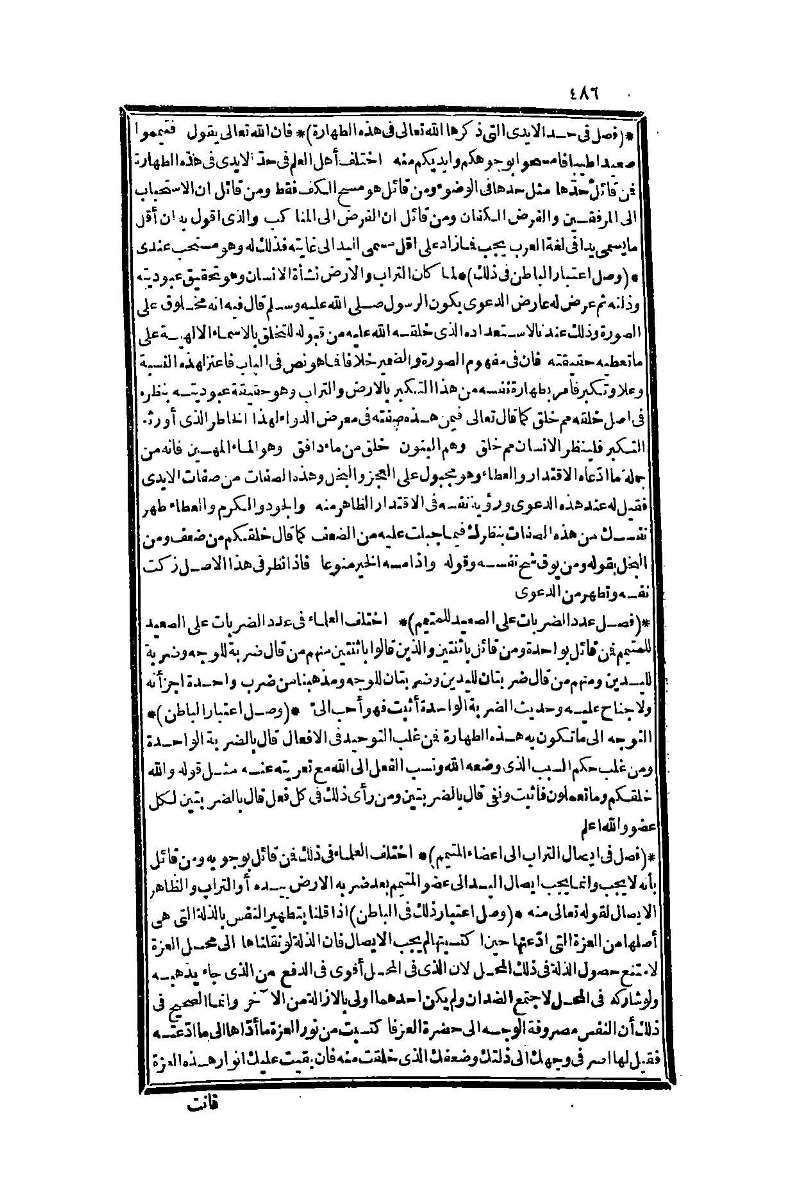 ٤٨٦
*(فصل في حد الايدى التى ذكرها الله تعالى فى هذه الطهارة)* فان الله تعالى يقول فتيمموا
صعيدا طيبا فامسحوا بوجوهكم وايديكم منه اختلف أهل العلم فى حد الايدى فى هذه الطهارة
فمن قائل حدّها مثل حدها فى الوضوء ومن قائل هو مسح الكف فقط ومن قائل ان الاستحباب
الى المرفقين والفرض الكفان ومن قائل ان الفرض الى المناكب والذى اقول به ان أقل
ما يسمى يدا فى لغة العرب يجب فما زاد على اقل مسمى اليد الى غايته فذلك له وهو مستحب عندى
*(وصل اعتبار الباطن فى ذلك)* لما كان التراب والارض نشأة الانسان وهو تحقيق عبوديته
وذلته ثم عرض له عارض الدعوى بكون الرسول صلى الله عليه وسلم قال فيه انه مخلوق على
الصورة وذلك عندنا لاستعداده الذى خلقه الله عليه من قبوله للتخلق بالاسماء الالهية على
ما تعطيه حقيقته فان فى مفهوم الصورة والضمير خلافا فما هو نص فى الباب فاعتز لهذه النسبة
وعلا وتكبر فأمر بطهارة نفسه من هذا التكبر بالارض والتراب وهو حقيقة عبوديته بنظره
فى اصل خلقه مم خلق كما قال تعالى فيمن هذه صفته فى معرض الدواء لهذا الخاطر الذى أورثه
التكبر فلينظر الانسان مم خلق وهم البنون خلق من ماء دافق وهو الماء المهين فانه من
جملة ما ادّعاه الاقتدار والعطاء وهو مجبول على العجز والبخل وهذه الصفات من صفات الايدى
فقيل له عند هذه الدعوى ورؤية نفسه فى الاقتدار الظاهر منه والجود والكرم والعطاء طهر
نفسك من هذه الصفات بنظرك فيما جبلت عليه من الضعف كما قال خلقكم من ضعف ومن
البخل بقوله ومن يوق شح نفسه وقوله واذا مسه الخير منوعا فاذا نظر فى هذا الاصل زكت
نفسه وتطهر من الدعوى
*(فصل عدد الضربات على الصعيد للمتيمم)* اختلف العلماء فى عدد الضربات على الصعيد
للمتيمم فمن قائل بواحدة ومن قائل باثنتين والذين قالوا باثنتين منهم من قال ضربة للوجه وضربة
لليدين ومنهم من قال ضربتان لليدين وضربتان للوجه ومذهبنا من ضرب واحدة اجزأته
ولا جناح عليه وحديث الضربة الواحدة أثبت فهو أحب الىّ *(وصل اعتبار الباطن)*
التوجه الى ما تكون به هذه الطهارة فمن غلب التوحيد فى الافعال قال بالضربة الواحدة
ومن غلب حكم السبب الذى وضعه الله ونسب الفعل الى الله مع تعريته عنه مثل قوله والله
خلقكم وما تعملون فاثبت ونفى قال بالضربتين ومن رأى ذلك فى كل فعل قال بالضربتين لكل
عضو والله اعلم
*(فصل فى ايصال التراب الى اعضاء المتيمم)* اختلف العلماء فى ذلك فمن قائل بوجوبه ومن قائل
بأنه لا يجب وانما يجب ايصال اليد الى عضو المتيمم بعد ضربه الارض بيده أو التراب والظاهر
الايصال لقوله تعالى منه *(وصل اعتبار ذلك فى الباطن)* اذا قلنا بتطهير النفس بالذلة التى هى
أصلها من العزة التى ادّعتها حين اكتسبتها لم يجب الايصال فان الذلة لو نقلناها الى محل العزة
لامتنع حصول الذلة فى ذلك المحل لان الذى فى المحل أقوى فى الدفع من الذى جاء يذهبه
ولو شاركه فى المحل لاجتمع الضدان ولم يكن احدهما اولى بالازالة من الآخر وانما الصحيح فى
ذلك أن النفس مصروفة الوجه الى حضرة العز فاكتسبت من نور العزة ما أدّاها الى ما ادعته
فقيل لها اصرفى وجهك الى ذلتك وضعفك الذى خلقت منه فان بقيت عليك انوار هذه العزة
فانت